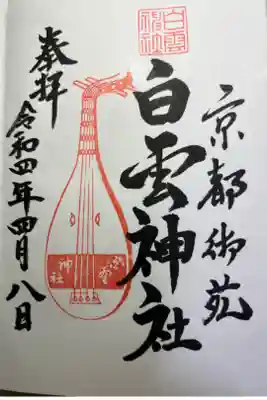 京都御苑
白雲神社
奉拝
令和四年四月八日
白雲
神社